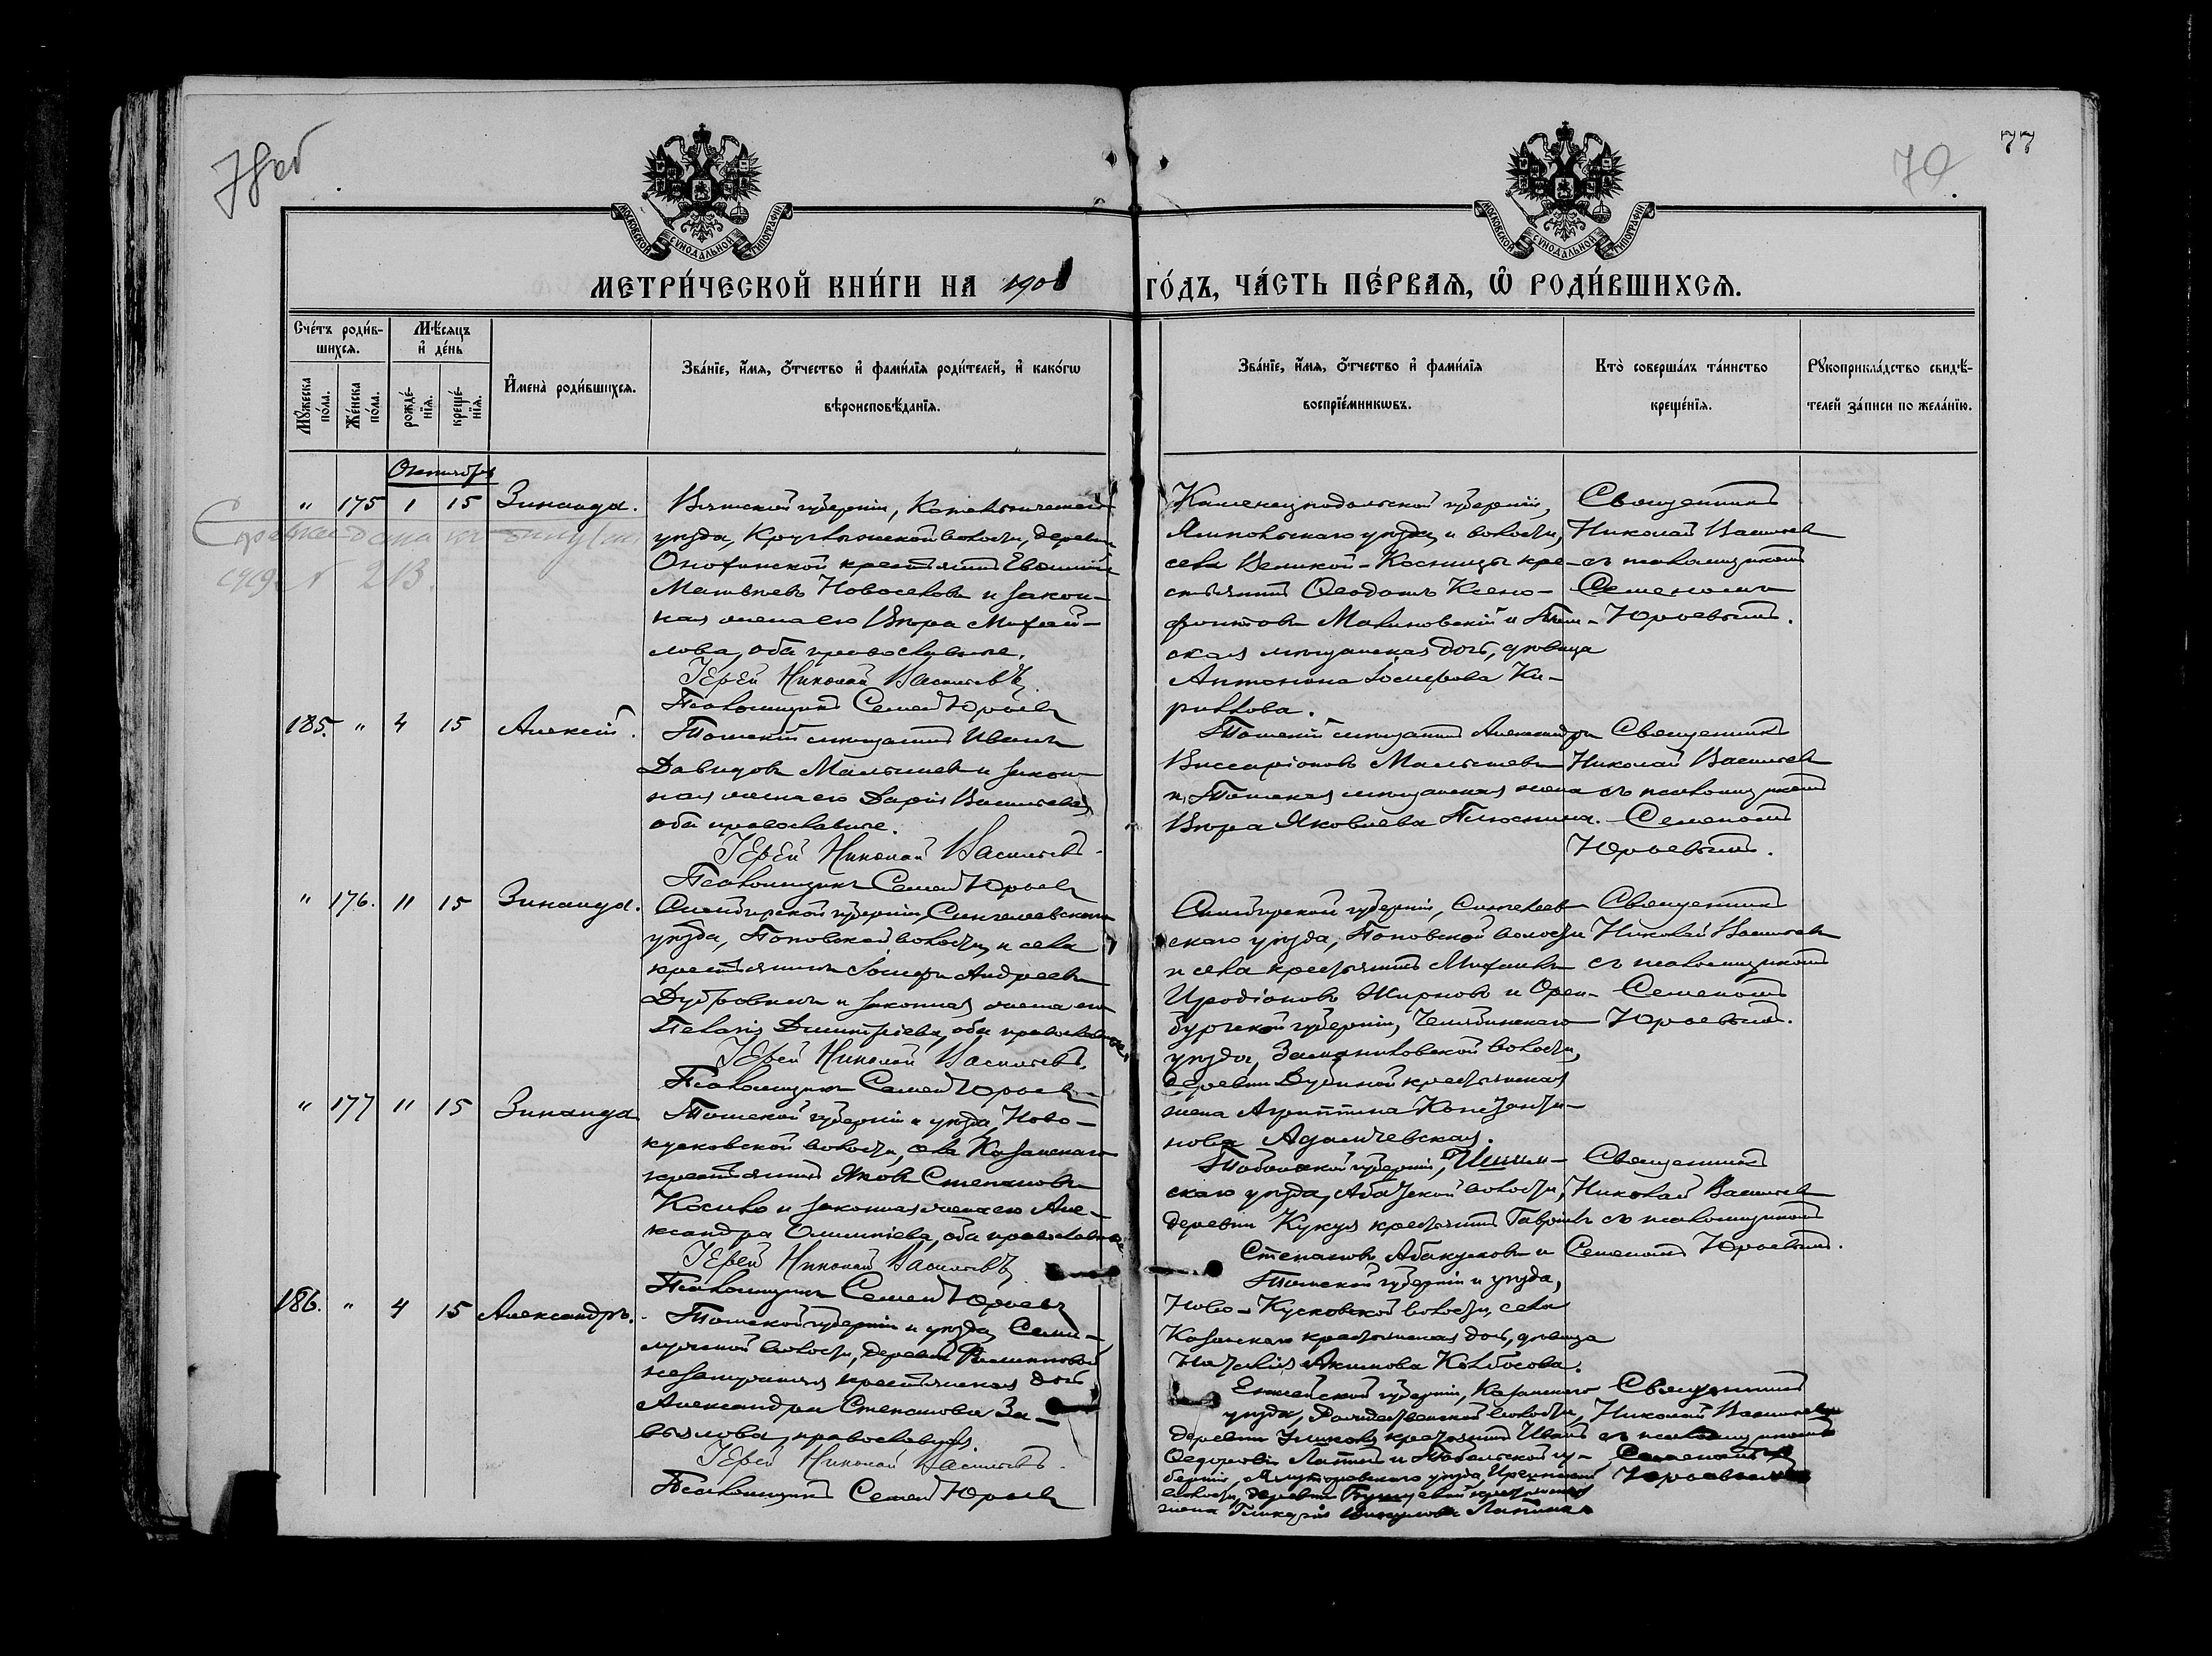 78об
70
77
МОСКОВСКОЙ СѴНОДАЛЬНОЙ ТИПОГРАФІИ
МОСКОВСКОЙ СѴНОДАЛЬНОЙ ТИПОГРАФІИ
МЕТРИ́ЧЕСКОЙ КНИ́ГИ НА 1908 ГО́ДЪ, ЧА́СТЬ ПЕ́РВАѦ, Ѡ҆ РОДИ́ВШИХСѦ.
Сче́тъ роди́в-
шихсѧ.
Мѣ́сяцъ
и҆ де́нь
Мꙋ́жеска
по́ла.
Же́нска
по́ла.
рожде́-
нїѧ.
креще́-
нїѧ.
И҆мена̀ роди́вшихсѧ.
Зва́нїе, и҆́мѧ, ѻ҆́тчество и҆ фами́лїѧ роди́телей, и҆ како́гѡ
вѣроисповѣ́данїѧ.
Зва́нїе, и҆́мѧ, ѻ҆́тчество и҆ фами́лїѧ
воспрїе́мникѡвъ.
Кто̀ соверша́лъ та́инство
креще́нїѧ.
Рꙋкоприкла́дство свидѣ́-
телей за́писи по жела́нїю.
Октябрь
" 175 1 15 Зинаида.
Вятской губерніи, Котельническаго
уѣзда, волости, деревни
крестьянинъ
Матвѣевъ Новоселовъ и закон-
ная жена его Вѣра Михай-
лова, оба православные.
Іерей Николай Васильевъ.
Псаломщикъ Семенъ Юрьевъ
Каменецподольской губерніи,
Ямпольскаго уѣзда и волости,
села Великой-Косницы кре-
стьянинъ Ѳеодотъ Ксено-
фонтовъ Малиновскій и Том-
ская мѣщанская дочь, дѣвица
Антонина Іосифова Ки-
риллова.
Священникъ
Николай Васильевъ
съ псаломщикомъ
Семеномъ
Юрьевымъ.
Справка дана
№ 213.
185. " 4 15 Алексій.
Томскій мѣщанинъ Иванъ
Давидовъ Малышевъ и закон-
ная жена его Дарія Васильева,
оба православные.
Іерей Николай Васильевъ.
Псаломщикъ Семенъ Юрьевъ
Томскій мѣщанинъ Александръ
Виссаріоновъ Малышевъ
и Томская мѣщанская жена
Вѣра Яковлева Плюснина.
Священникъ
Николай Васильевъ
съ псаломщикомъ
Семеномъ
Юрьевымъ.
" 176. 11 15 Зинаида.
Симбирской губерніи, Сингилеевскаго
уѣзда, Поповской волости и села
крестьянинъ Іосифъ Андреевъ
и законная жена его
Пелагія Димитріева, оба православные.
Іерей Николай Васильевъ.
Псаломщикъ Семенъ Юрьевъ
Симбирской губерніи, Сингилеев-
скаго уѣзда, Поповской волости
и села крестьянинъ Михаилъ
Иродіоновъ Жирновъ и Орен-
бургской губерніи, Челябинскаго
уѣзда, волости,
деревни крестьянская
жена Агриппина Константи-
нова Адамчевская.
Священникъ
Николай Васильевъ
съ псаломщикомъ
Семеномъ
Юрьевымъ.
" 177 11 15 Зинаида
Томской губерніи и уѣзда, Ново-
кусковской волости, села Казанскаго
крестьянинъ Яковъ Степановъ
и законная жена его Але-
ксандра, оба православные
Іерей Николай Васильевъ
Псаломщикъ Семенъ Юрьевъ
Тобольской губерніи, Ишим-
скаго уѣзда, Абатской волости,
деревни крестьянинъ Гавріилъ
Степановъ Абакумовъ и
Томской губерніи и уѣзда,
Ново-Кусковской волости, села
Казанскаго крестьянская дочь, дѣвица
Наталія Акимова Колбасова.
Священникъ
Николай Васильевъ
съ псаломщикомъ
Семеномъ Юрьевымъ.
186. " 4 15 Александръ.
Томской губерніи и уѣзда, Семи-
лужной волости, деревни
незамужняя крестьянская дочь
Александра Степанова За-
вьялова, православная.
Іерей Николай Васильевъ.
Псаломщикъ Семенъ Юрьевъ
Енисейской губерніи,
уѣзда, Рождественской волости,
деревни крестьянинъ Иванъ
Ѳедоровъ Лапинъ и Тобольской гу-
берніи, Ялуторовскаго уѣзда,
волости, деревни крестьянская
жена Гликерія Лапина.
Священникъ
Николай Васильевъ
съ псаломщикомъ
Семеномъ
Юрьевымъ